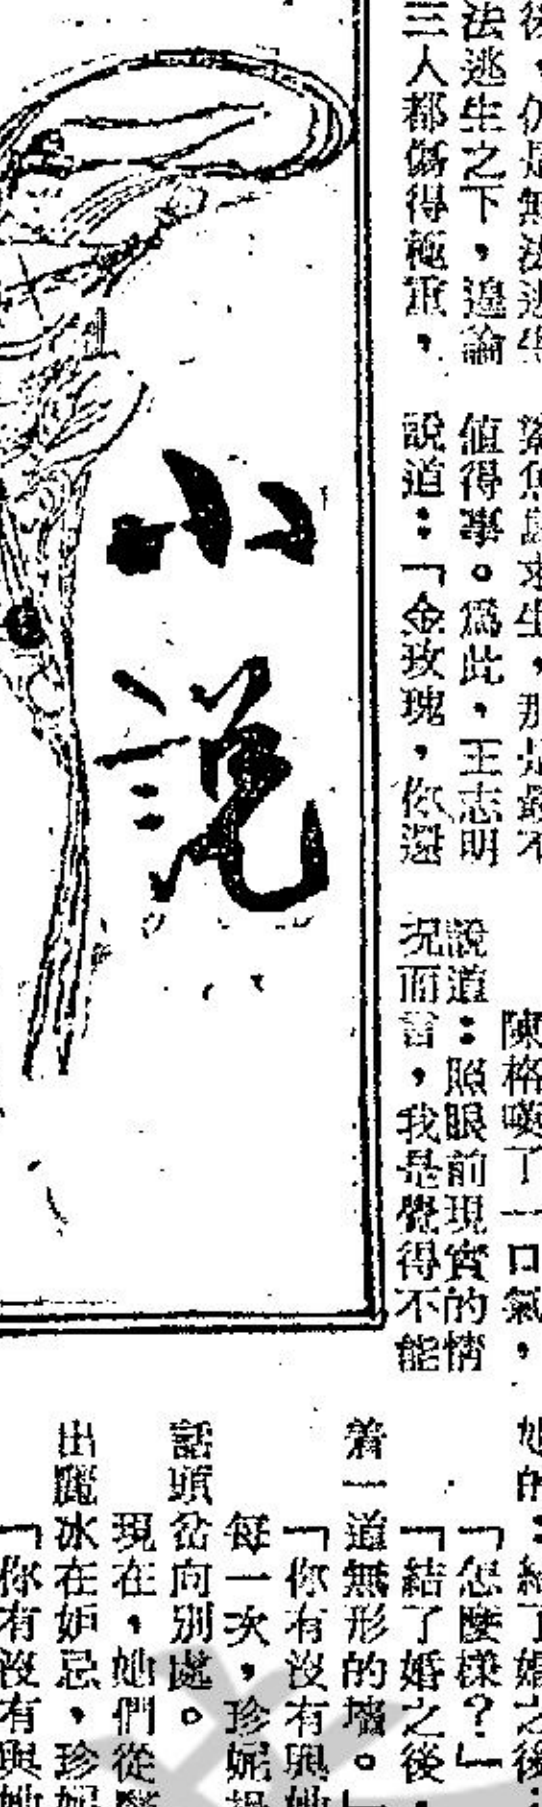 法逃生之下，遑論
三人都傷得極重，
值得事。爲此，王志明
說道：「金玫瑰，你還
陳格嘆了一口氣，
說道：照眼前現實的情
況而言，我是覺得不能
小說
「怎麼樣？」
「結了婚之後，
着一道無形的墻。」
「你有沒有與她
每一次，珍妮提
話頭岔向別處。
現在，她們從
出麗冰在妒忌，珍妮
「你有沒有與她